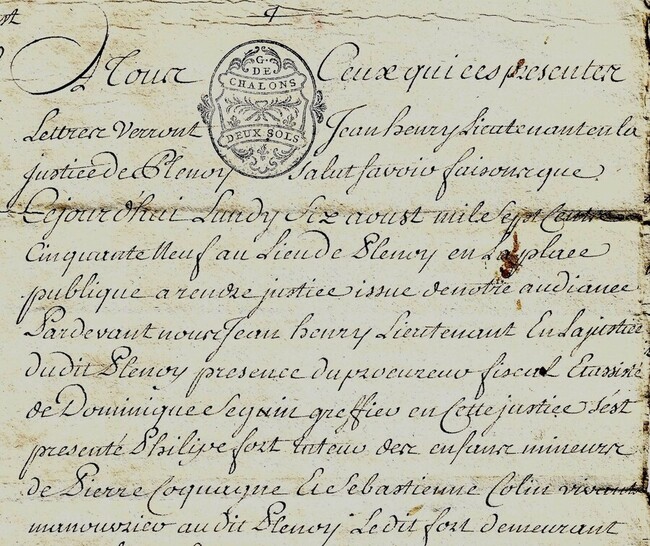 A Tous Ceux qui ces presentes
G. DE
CHALONS
DEUX SOLS
Lettres Verront Jean henry Lieutenant en la
justice de Plenoy Salut savoir faisons que
Cejourd'huit Lundy Six aoust mile Sept Cents
Cinquante Neuf au Lieu de Plenoy en La place
publique a rendre justice issue de notre audiance
Pardevant nous Jean henry Lieutenant En La justice
dudit Plenoy presence du procureur fiscal Et assisté
de Dominique Seguin greffier en Cette justice S'est
presenté Philipe fort tuteur des enfans mineurs
de Pierre Coquagne Et Sebastienne Colin vivant
manouvrier audit Plenoy Ledit fort demeurant